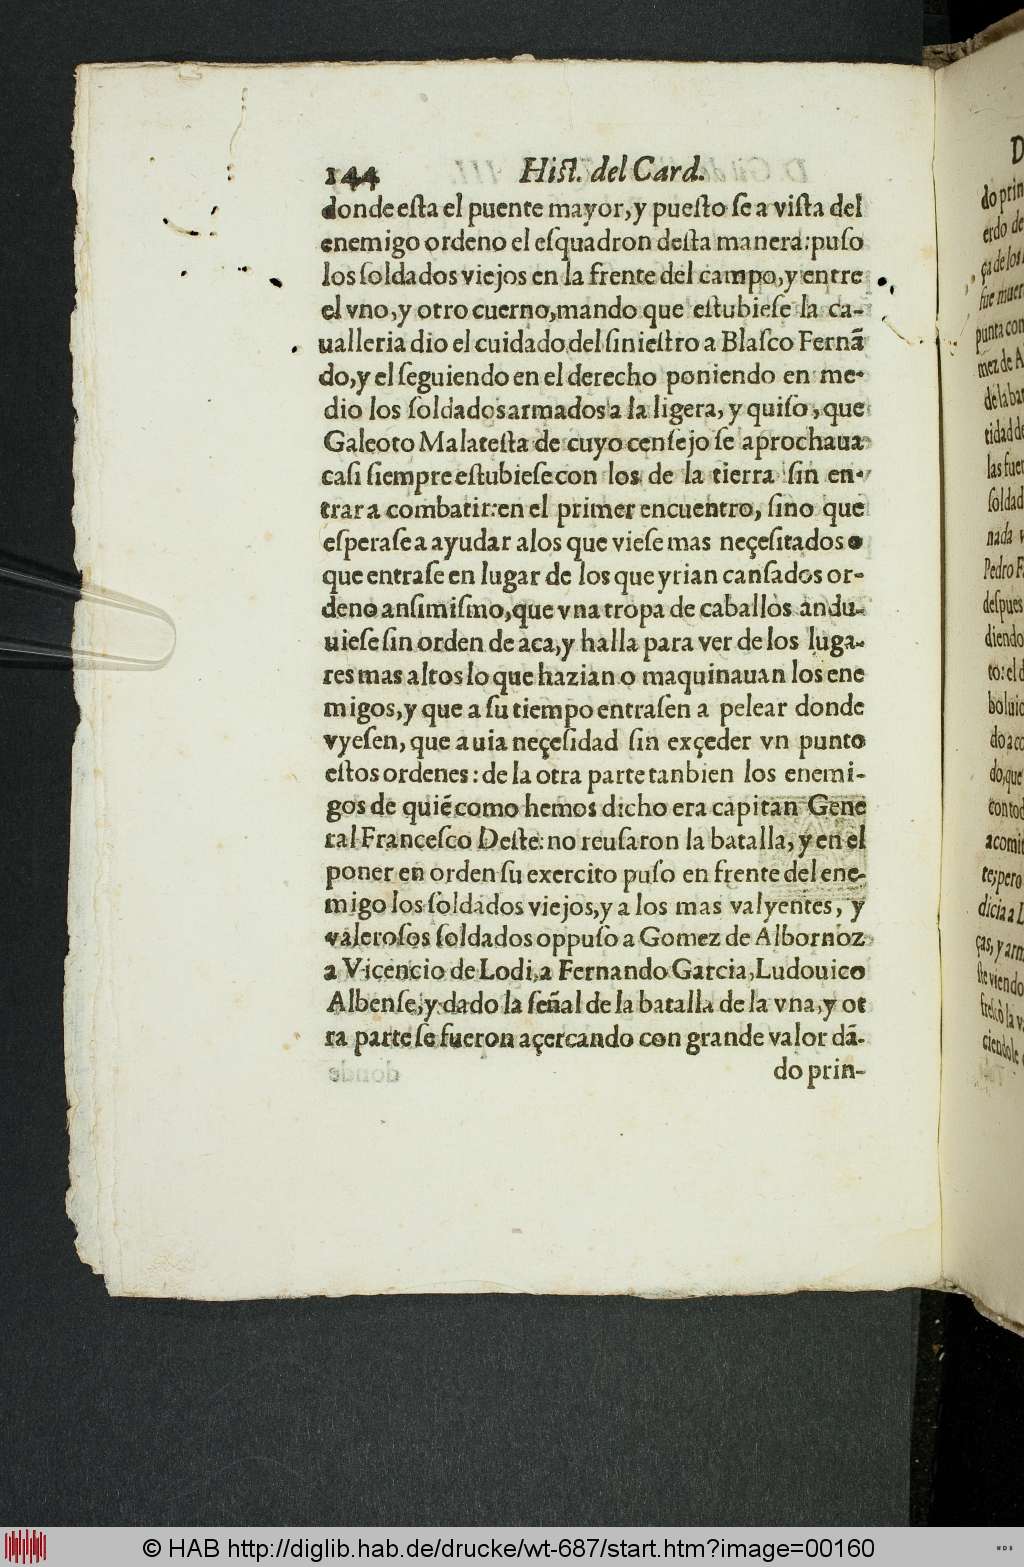 144 Hiſt. del Card.
donde eſta el puente mayor, y pueſto ſe a viſta del
enemigo ordeno el eſquadron deſta manera: puſo
los ſoldados viejos en la frente del campo, y entre
el vno, y otro cuerno, mando que eſtubieſe la ca-
ualleria dio el cuidado del ſinieſtro a Blaſco Fernã
do, y el ſeguiendo en el derecho poniendo en me-
dio los ſoldados armados a la ligera, y quiſo, que
Galeoto Malateſta de cuyo cenſejo ſe aprochaua
caſi ſiempre eſtubieſe con los de la tierra ſin en-
trar a combatir: en el primer encuentro, ſino que
eſperaſe a ayudar alos que vieſe mas neçeſitados o
que entraſe en lugar de los que yrian canſados or-
deno anſimiſmo, que vna tropa de caballos andu-
uieſe ſin orden de aca, y halla para ver de los luga-
res mas altos lo que hazian o maquinauan los ene
migos, y que a ſu tiempo entraſen a pelear donde
vyeſen, que auia neçeſidad ſin exçeder vn punto
eſtos ordenes: de la otra parte tanbien los enemi-
gos de quiẽ como hemos dicho era capitan Gene
ral Franceſco Deſte: no reuſaron la batalla, y en el
poner en orden ſu exercito puſo en frente del ene-
migo los ſoldados viejos, y a los mas valyentes, y
valeroſos ſoldados oppuſo a Gomez de Albornoz
a Vicencio de Lodi, a Fernando Garcia, Ludouico
Albenſe, y dado la ſeñal de la batalla de la vna, y ot
ra parte ſe fueron açercando con grande valor dã-
do prin-
do prin
erdo de
ça de los
fue muer
punta con
mez de A
de la bat
tidad de
las fuer
ſoldad
nada v
Pedro F
deſpues
diendo
to: el d
boluio
do a co
do, que
con tod
acomit
te; pero
dicia a L
ças, y arm
ſte viendo
freſco la v
ciendole
© HAB http://diglib.hab.de/drucke/wt-687/start.htm?image=00160